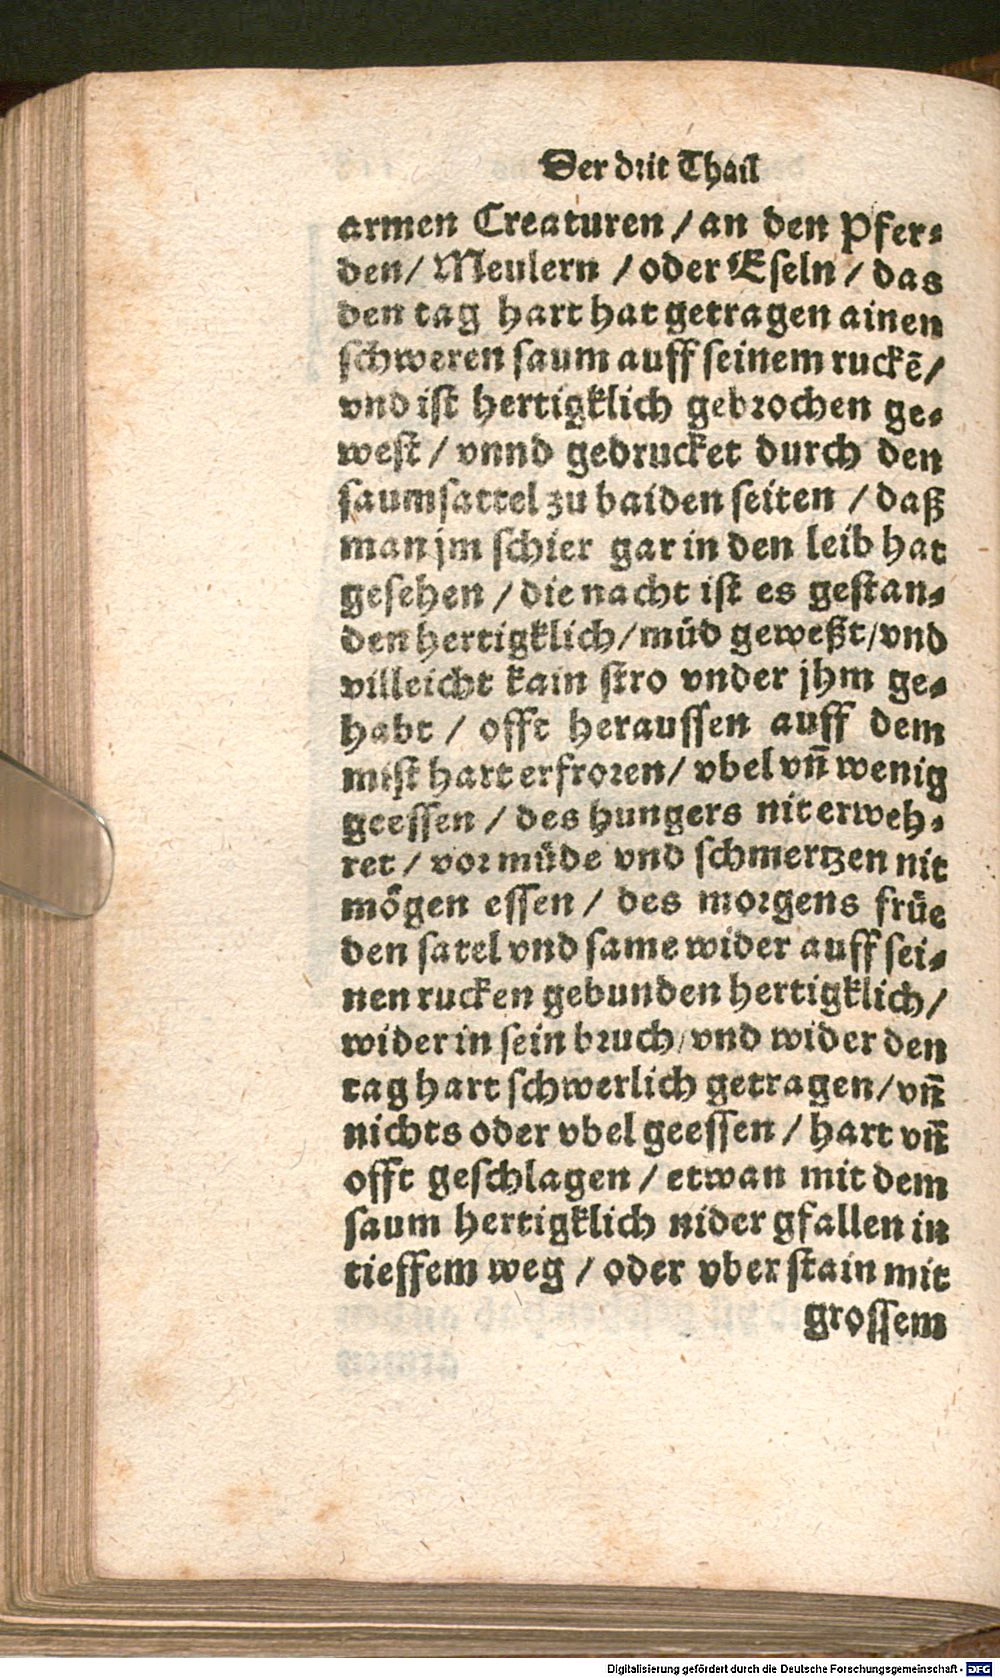 Der drit Thail
armen Creaturen / an den Pfer⸗
den / Meulern / oder Eseln / das
den tag hart hat getragen ainen
schweren saum auff seinem ruckē /
vnd ist hertigklich gebrochen ge⸗
west / vnnd gedrucket durch den
saumsattel zu baiden seiten / daß
man jm schier gar in den leib hat
gesehen / die nacht ist es gestan⸗
den hertigklich / müd geweßt / vnd
villeicht kain stro vnder jhm ge⸗
habt / offt heraussen auff dem
mist hart erfroren / vbel vñ wenig
geessen / des hungers nit erweh⸗
ret / vor müde vnd schmertzen nit
mögen essen / des morgens früe
den satel vnd same wider auff sei⸗
nen rucken gebunden hertigklich /
wider in sein bruch / vnd wider den
tag hart schwerlich getragen / vñ
nichts oder vbel geessen / hart vñ
offt geschlagen / etwan mit dem
saum hertigklich nider gfallen in
tieffem weg / oder vber stain mit
grossem
Digitalisierung gefördert durch die Deutsche Forschungsgemeinschaft - DFG